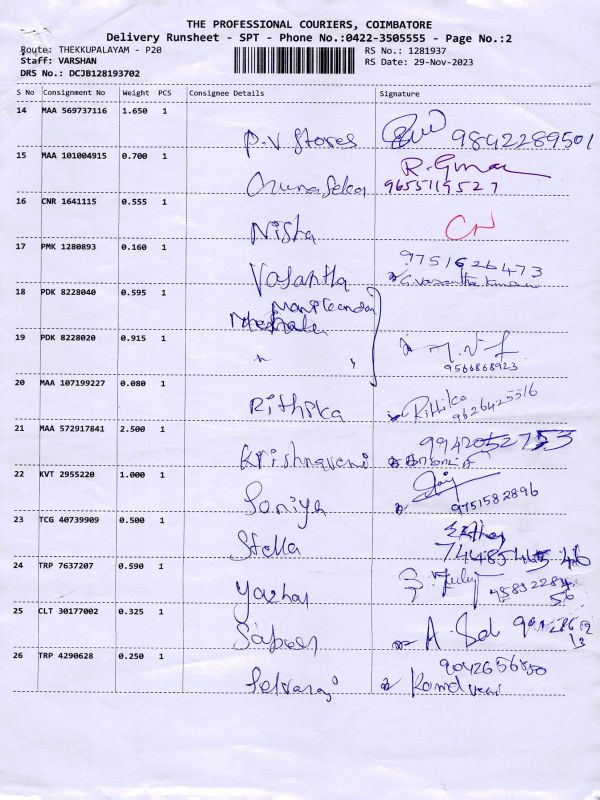 THE PROFESSIONAL COURIERS, COIMBATORE
Delivery Runsheet - SPT - Phone No.:0422-3505555 - Page No.:2
Route: THEKKUPALAYAM - P20 RS No.: 1281937
Staff: VARSHAN RS Date: 29-Nov-2023
DRS No.: DCJB128193702
S No Consignment No Weight PCS Consignee Details Signature
14 MAA 569737116 1.650 1
P.V Stores 9842289501
15 MAA 101004915 0.700 1
9655119527
16 CNR 1641115 0.555 1
Nisha CN
17 PMK 1280893 0.160 1
Vasantha 9751626473
18 PDK 8228040 0.595 1
19 PDK 8228020 0.915 1
" "
9566868923
20 MAA 107199227 0.080 1
Rithika Rithika
9626425516
21 MAA 572917841 2.500 1
Krishnaveni
22 KVT 2955220 1.000 1
Soniya 9751582896
23 TCG 40739909 0.500 1
Stella
24 TRP 7637207 0.590 1
25 CLT 30177002 0.325 1
26 TRP 4290628 0.250 1
Selvaraj 9042656850